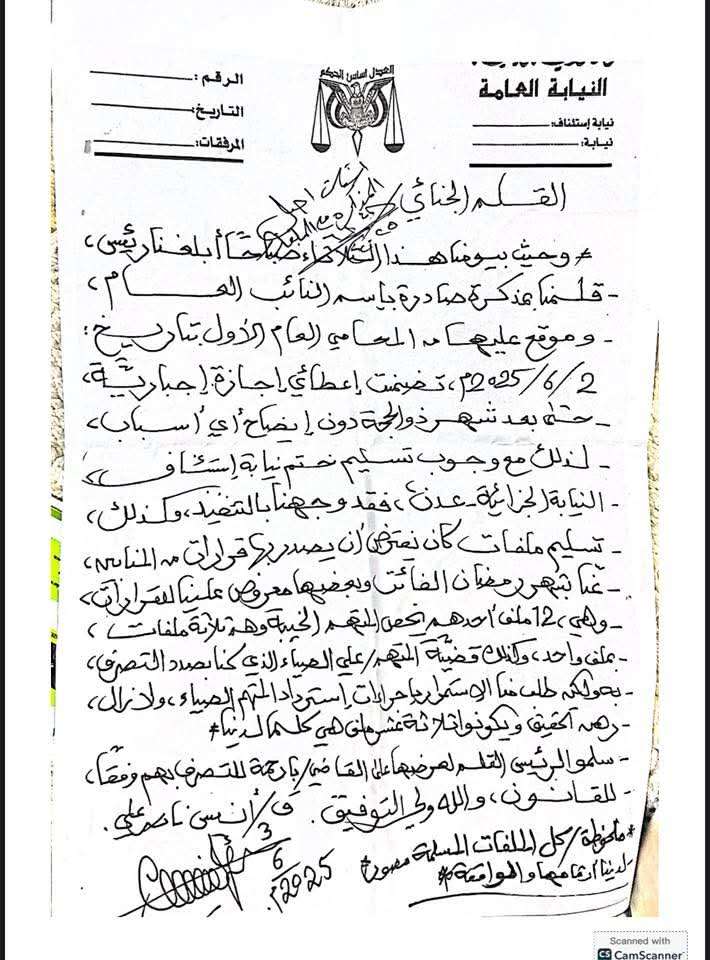 النيابة العامة
نيابة إستئناف:
نيابة:
العدل اساس الحكم
الرقم:
التاريخ:
المرفقات:
القلم الجنائي
* وحيث بيومنا هذا الثلاثاء صباحًا أبلغنا رئيس،
- قلمنا بمذكرة صادرة بإسم النائب العام،
- وموقع عليها من المحامي العام الأول بتاريخ:
2025/6/2م، تضمنت إعطائي إجازة إجبارية،
- حتى بعد شهر ذو الحجة دون إيضاح أي أسباب،
- لذلك مع وجوب تسليم ختم نيابة إستئناف
النيابة الجزائية - عدن، فقد وجهنا بالتنفيذ، وكذلك،
- تسليم ملفات كان يفترض أن يصدر بها قرارات من
شهر رمضان الفائت وبعضها معروض علينا للقرارات
- وهي، 12 ملف أحدهم يخص المتهم وهم ثلاثة ملفات،
- بملف واحد، وكذلك قضية المتهم/علي الضياء الذي كنا بصدد التصرف،
- به ولكن طلب منا الاستمرار بإجراءات إسترداد المتهم الضياء، ولازال،
- رهن التحقيق ويكونوا ثلاثة عشر ملف هي كلما لدينا*
- سلموا لرئيس القلم لعرضها على القاضي/ للتصرف بهم وفقًا،
- للقانون، والله ولي التوفيق. ق/أنيس ناصر علي.
3
6
2025م
* ملحوظة/كل الملفات المسلمة مصورة
لدينا أرقامها والموافقة*
Scanned with
CS CamScanner